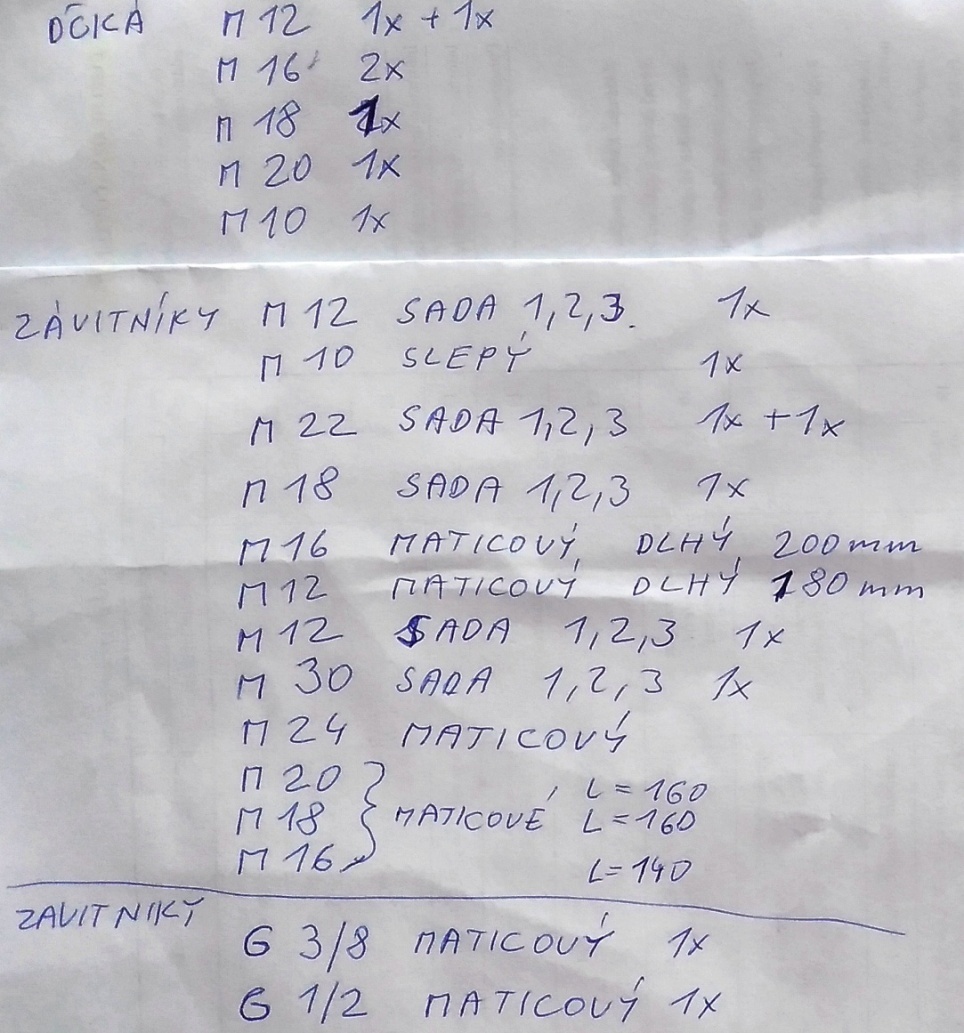 OČKÁ M 12 1x + 1x
M 16 2x
M 18 1x
M 20 1x
M 10 1x
ZÁVITNÍKY M 12 SADA 1,2,3. 1x
M 10 SLEPÝ 1x
M 22 SADA 1,2,3 1x + 1x
M 18 SADA 1,2,3 1x
M 16 MATICOVÝ DLHÝ 200 mm
M 12 MATICOVÝ DLHÝ 180 mm
M 12 SADA 1,2,3 1x
M 30 SADA 1,2,3 1x
M 24 MATICOVÝ
M 20 L = 160
M 18 } MATICOVÉ L = 160
M 16 L = 140
ZAVITNIKY
G 3/8 MATICOVÝ 1x
G 1/2 MATICOVÝ 1x